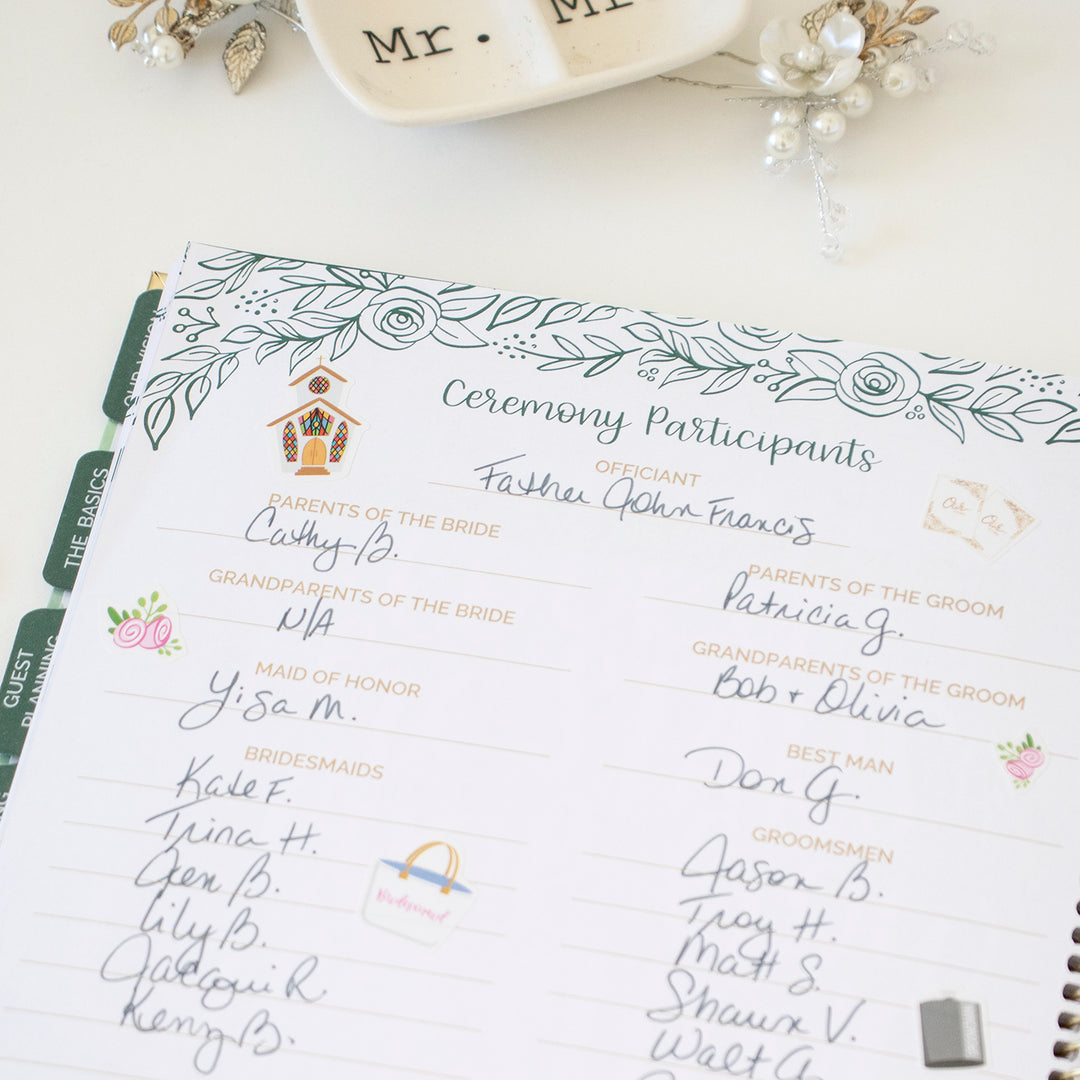 Mr.
Ceremony Participants
OFFICIANT
Father John Francis
PARENTS OF THE BRIDE
Cathy B.
GRANDPARENTS OF THE BRIDE
N/A
MAID OF HONOR
Lisa M.
BRIDESMAIDS
Kate F.
Trina H.
Jen B.
Lily B.
Jacqui R.
Keny B.
PARENTS OF THE GROOM
Patricia G.
GRANDPARENTS OF THE GROOM
Bob + Olivia
BEST MAN
Don G.
GROOMSMEN
Jason B.
Troy H.
Matt S.
Shaun V.
Walt
Bridesmaid
OUR VISION
THE BASICS
GUEST
PLANNING